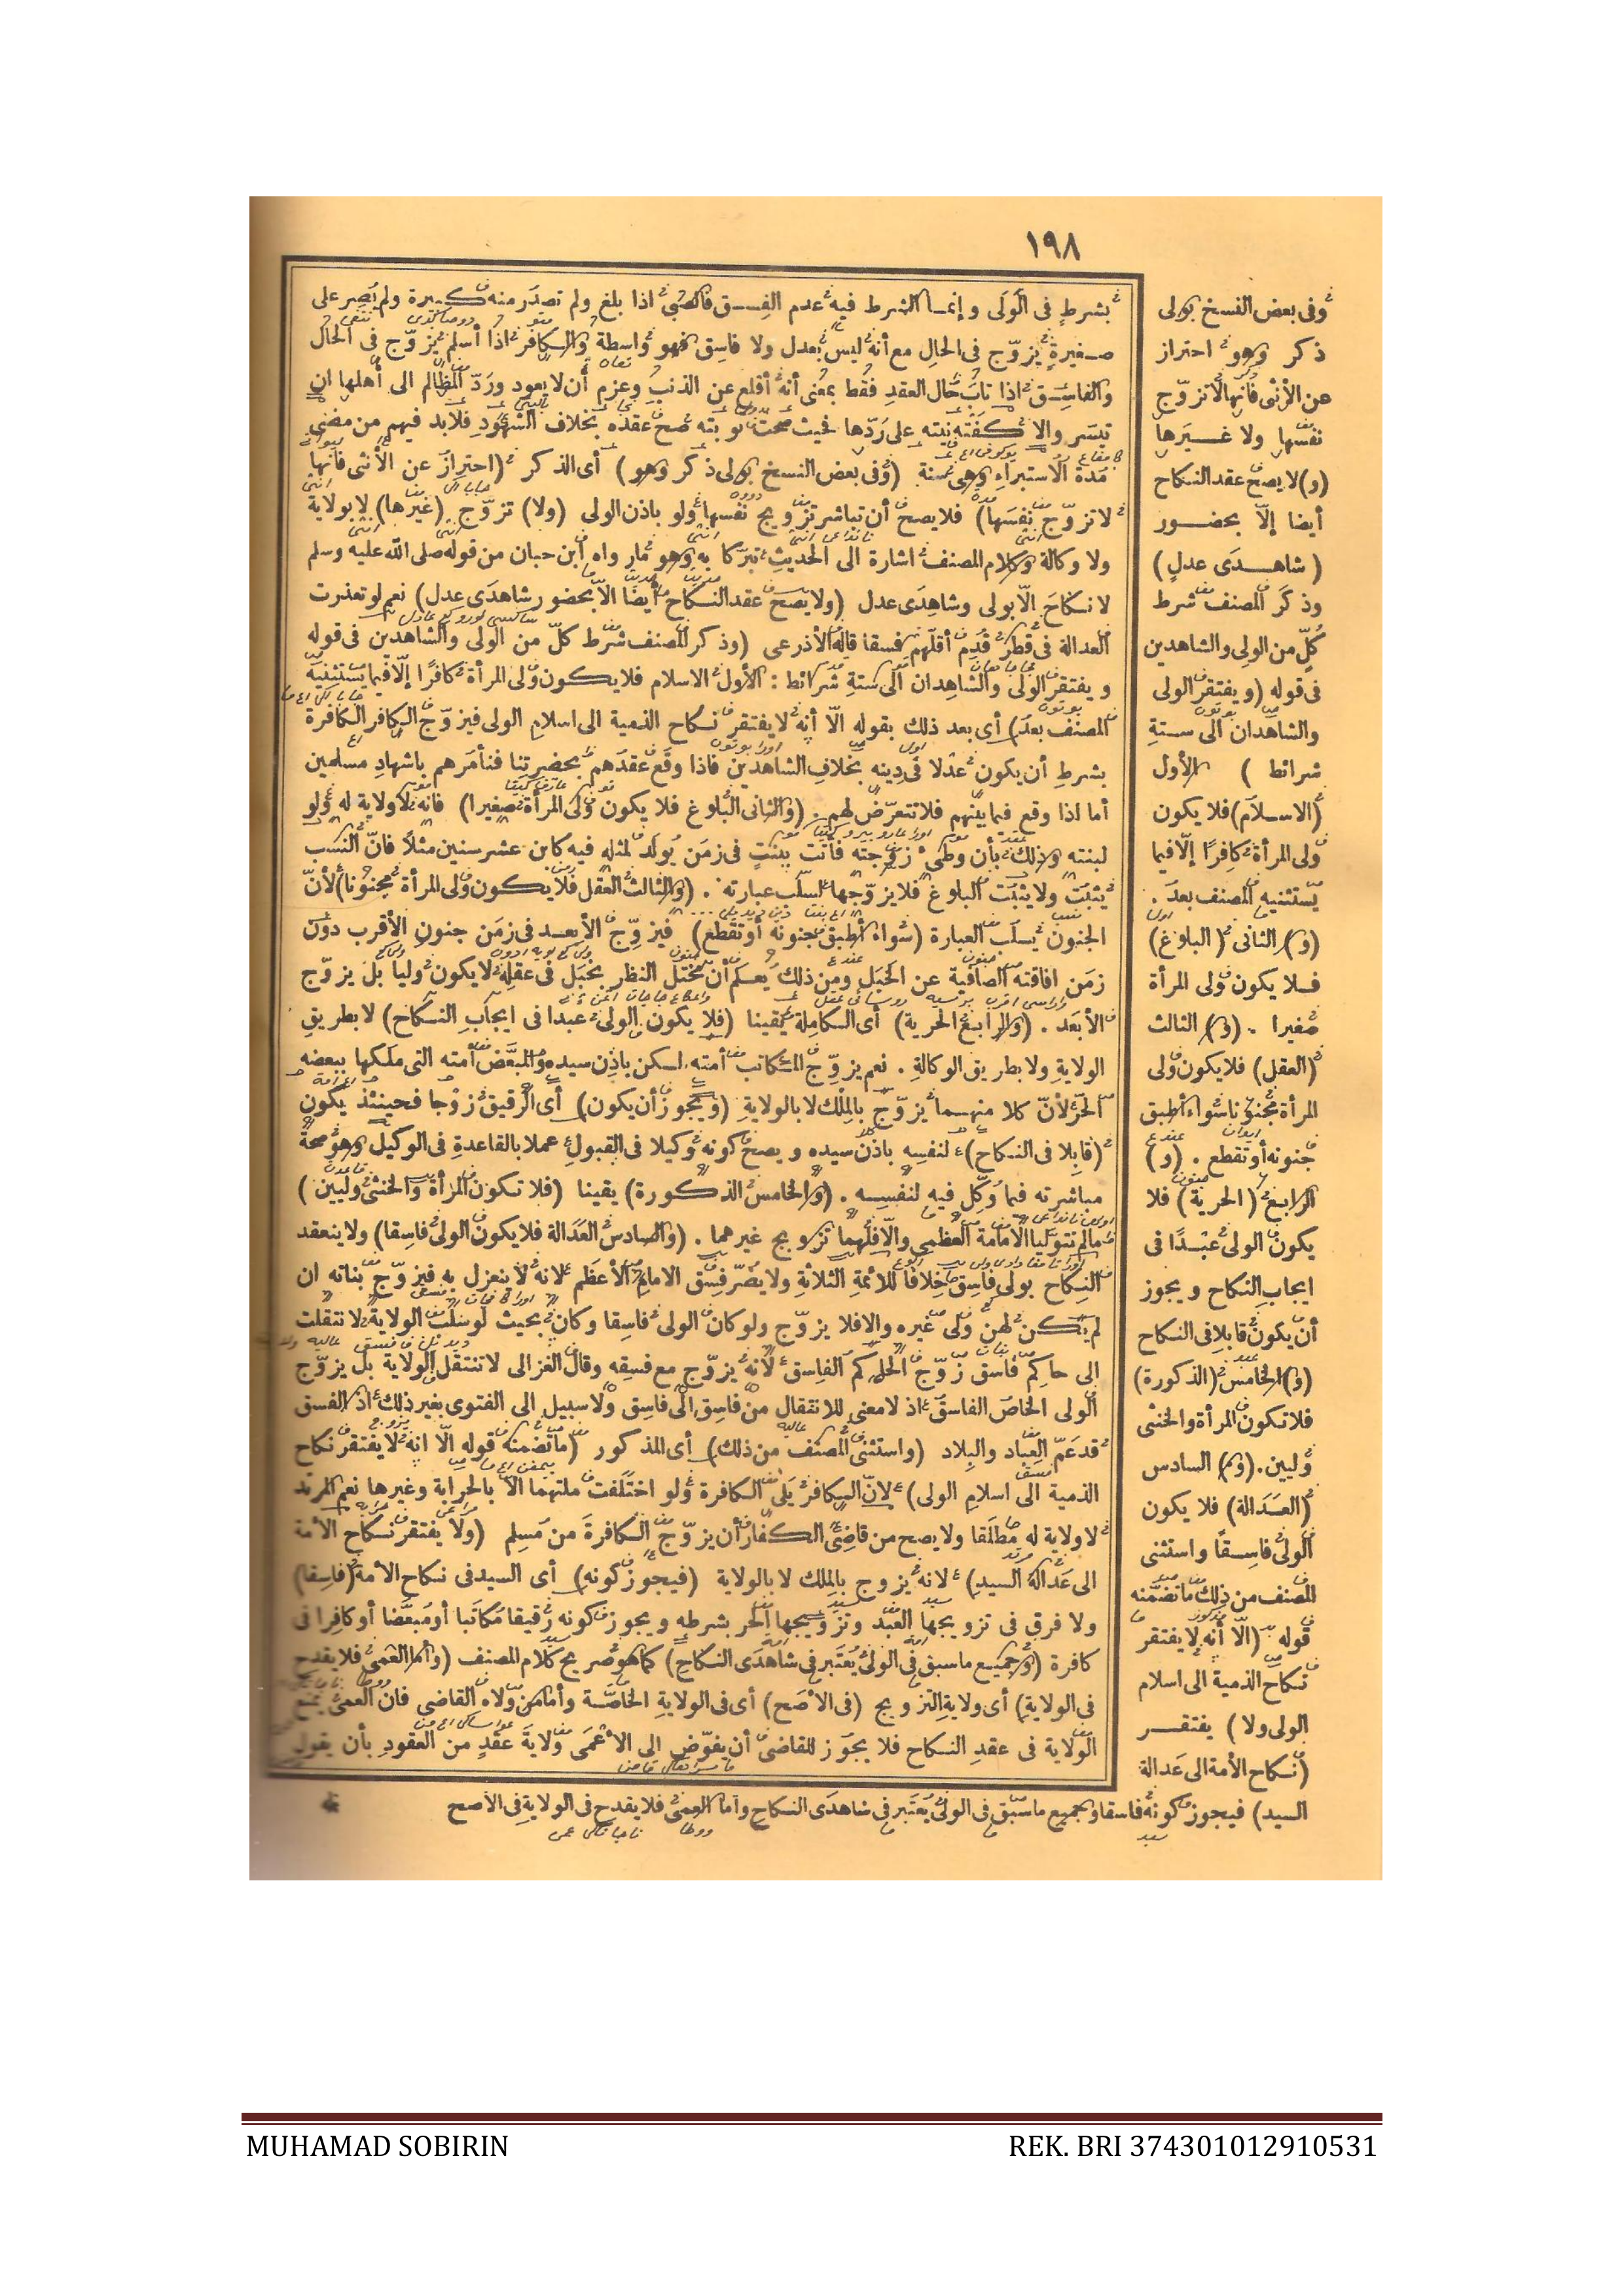 ١٩٨
بشرط في الولي وإنما الشرط فيه عدم الفسق فالصبي اذا بلغ ولم تصدر منه كبيرة ولم يصر على
صغيرة يزوّج في الحال مع أنه ليس بعدل ولا فاسق فهو واسطة والكافر اذا أسلم يزوّج في الحال
والفاسق اذا تاب حال العقد فقط بمعنى أنه أقلع عن الذنب وعزم أن لا يعود وردّ المظالم الى أهلها ان
تيسر والا كفته نيته على ردّها فحيث صحت توبته صح عقده بخلاف الشهود فلا بد فيهم من مضي
مدة الاستبراء وهي سنة (وفي بعض النسخ بولي ذكر وهو) أي الذكر (احتراز عن الأنثى فانها
لا تزوّج نفسها) فلا يصح أن تباشر تزويج نفسها ولو باذن الولي (ولا) تزوّج (غيرها) لا بولاية
ولا وكالة وكلام المصنف اشارة الى الحديث تبركا به وهو مارواه ابن حبان من قوله صلى الله عليه وسلم
لا نكاح الّا بولي وشاهدي عدل (ولا يصح عقد النكاح أيضا الّا بحضور شاهدي عدل) نعم لو تعذرت
العدالة في قطر قدم أقلهم فسقا قاله الأذرعي (وذكر المصنف شرط كلّ من الولي والشاهدين في قوله
ويفتقر الولي والشاهدان الى ستة شرائط : الأول الاسلام فلا يكون ولي المرأة كافرًا إلّا فيما يستثنيه
المصنف بعد) أي بعد ذلك بقوله الّا أنه لا يفتقر نكاح الذمية الى اسلام الولي فيزوّج الكافر الكافرة
بشرط أن يكون عدلا في دينه بخلاف الشاهدين فاذا وقع عقدهم بحضرتنا فنأمرهم باشهاد مسلمين
أما اذا وقع فيما بينهم فلا نتعرّض لهم . (والثاني البلوغ فلا يكون ولي المرأة صغيرا) فانه لا ولاية له ولو
لبنته وذلك بأن وطئ زوجته فأتت ببنت في زمن يولد لمثله فيه كابن عشر سنين مثلاً فانّ النسب
يثبت ولا يثبت البلوغ فلا يزوّجها لسلب عبارته . (والثالث العقل فلا يكون ولي المرأة مجنونا) لأنّ
الجنون يسلب العبارة (سواء أطبق جنونه أو تقطع) فيزوّج الأبعد في زمن جنون الأقرب دون
زمن افاقته الصافية عن الخبل ومن ذلك يعلم أن مختل النظر بخبل في عقله لا يكون وليا بل يزوّج
الأبعد . (والرابع الحرية) أي الكاملة يقينا (فلا يكون الولي عبدا في ايجاب النكاح) لا بطريق
الولاية ولا بطريق الوكالة . نعم يزوّج المكاتب أمته لكن باذن سيده والمبعّض أمته التي ملكها ببعضه
الحرّ لأنّ كلا منهما يزوّج بالملك لا بالولاية (ويجوز أن يكون) أي الرقيق زوجا فحينئذ يكون
(قابلا في النكاح) لنفسه باذن سيده ويصح كونه وكيلا في القبول عملا بالقاعدة في الوكيل وهو صحة
مباشرته فيما وكّل فيه لنفسه . (والخامس الذكورة) يقينا (فلا تكون المرأة والخنثى وليين)
مالم تتوليا الامامة العظمى والّا فلهما تزويج غيرهما . (والسادس العدالة فلا يكون الولي فاسقا) ولا ينعقد
النكاح بولي فاسق خلافا للأئمة الثلاثة ولا يضرّ فسق الامام الأعظم لانه لا ينعزل به فيزوّج بناته ان
لم يكن لهن ولي غيره والا فلا يزوّج ولو كان الولي فاسقا وكان بحيث لو سلب الولاية لانتقلت
الى حاكم فاسق زوّج الحاكم الفاسق لأنه يزوّج مع فسقه وقال الغزالي لا تنتقل الولاية بل يزوّج
الولي الخاص الفاسق اذ لا معنى للانتقال من فاسق الى فاسق ولا سبيل الى الفتوى بغير ذلك اذ الفسق
قد عمّ العباد والبلاد (واستثنى المصنف من ذلك) أي المذكور (ما تضمنه قوله الّا انه لا يفتقر نكاح
الذمية الى اسلام الولي) لانّ الكافر يلي الكافرة ولو اختلفت ملتهما الا بالحرابة وغيرها نعم المرتد
لا ولاية له مطلقا ولا يصح من قاضي الكفار أن يزوّج الكافرة من مسلم (ولا يفتقر نكاح الأمة
الى عدالة السيد) لانه يزوج بالملك لا بالولاية (فيجوز كونه) أي السيد في نكاح الأمة (فاسقا)
ولا فرق في تزويجها العبد وتزويجها الحر بشرطه ويجوز كونه رقيقا مكاتبا أو مبعضا أو كافرا في
كافرة (وجميع ما سبق في الولي يعتبر في شاهدي النكاح) كما هو صريح كلام المصنف (وأما العمى فلا يقدح
في الولاية) أي ولاية التزويج (في الأصح) أي في الولاية الخاصّة وأما من ولاه القاضي فان العمى يمنع
الولاية في عقد النكاح فلا يجوز للقاضي أن يفوّض الى الأعمى ولاية عقد من العقود بأن يقول
وفي بعض النسخ بولي
ذكر وهو احتراز
عن الأنثى فانها لا تزوّج
نفسها ولا غيرها
(و) لا يصح عقد النكاح
أيضا إلّا بحضور
(شاهدي عدل)
وذكر المصنف شرط
كلّ من الولي والشاهدين
في قوله (ويفتقر الولي
والشاهدان الى ستة
شرائط) الأول
(الاسلام) فلا يكون
ولي المرأة كافرا إلّا فيما
يستثنيه المصنف بعد .
(و) الثاني (البلوغ)
فلا يكون ولي المرأة
صغيرا . (و) الثالث
(العقل) فلا يكون ولي
المرأة مجنونا سواء أطبق
جنونه أو تقطع . (و)
الرابع (الحرية) فلا
يكون الولي عبدًا في
ايجاب النكاح ويجوز
أن يكون قابلا في النكاح
(و) الخامس (الذكورة)
فلا تكون المرأة والخنثى
وليين . (و) السادس
(العدالة) فلا يكون
الولي فاسقًا واستثنى
المصنف من ذلك ما تضمّنه
قوله (الّا أنه لا يفتقر
نكاح الذمية الى اسلام
الولي ولا) يفتقر
(نكاح الأمة الى عدالة
السيد) فيجوز كونه فاسقا وجميع ما سبق في الولي يعتبر في شاهدي النكاح وأما العمى فلا يقدح في الولاية في الأصح
MUHAMAD SOBIRIN REK. BRI 374301012910531